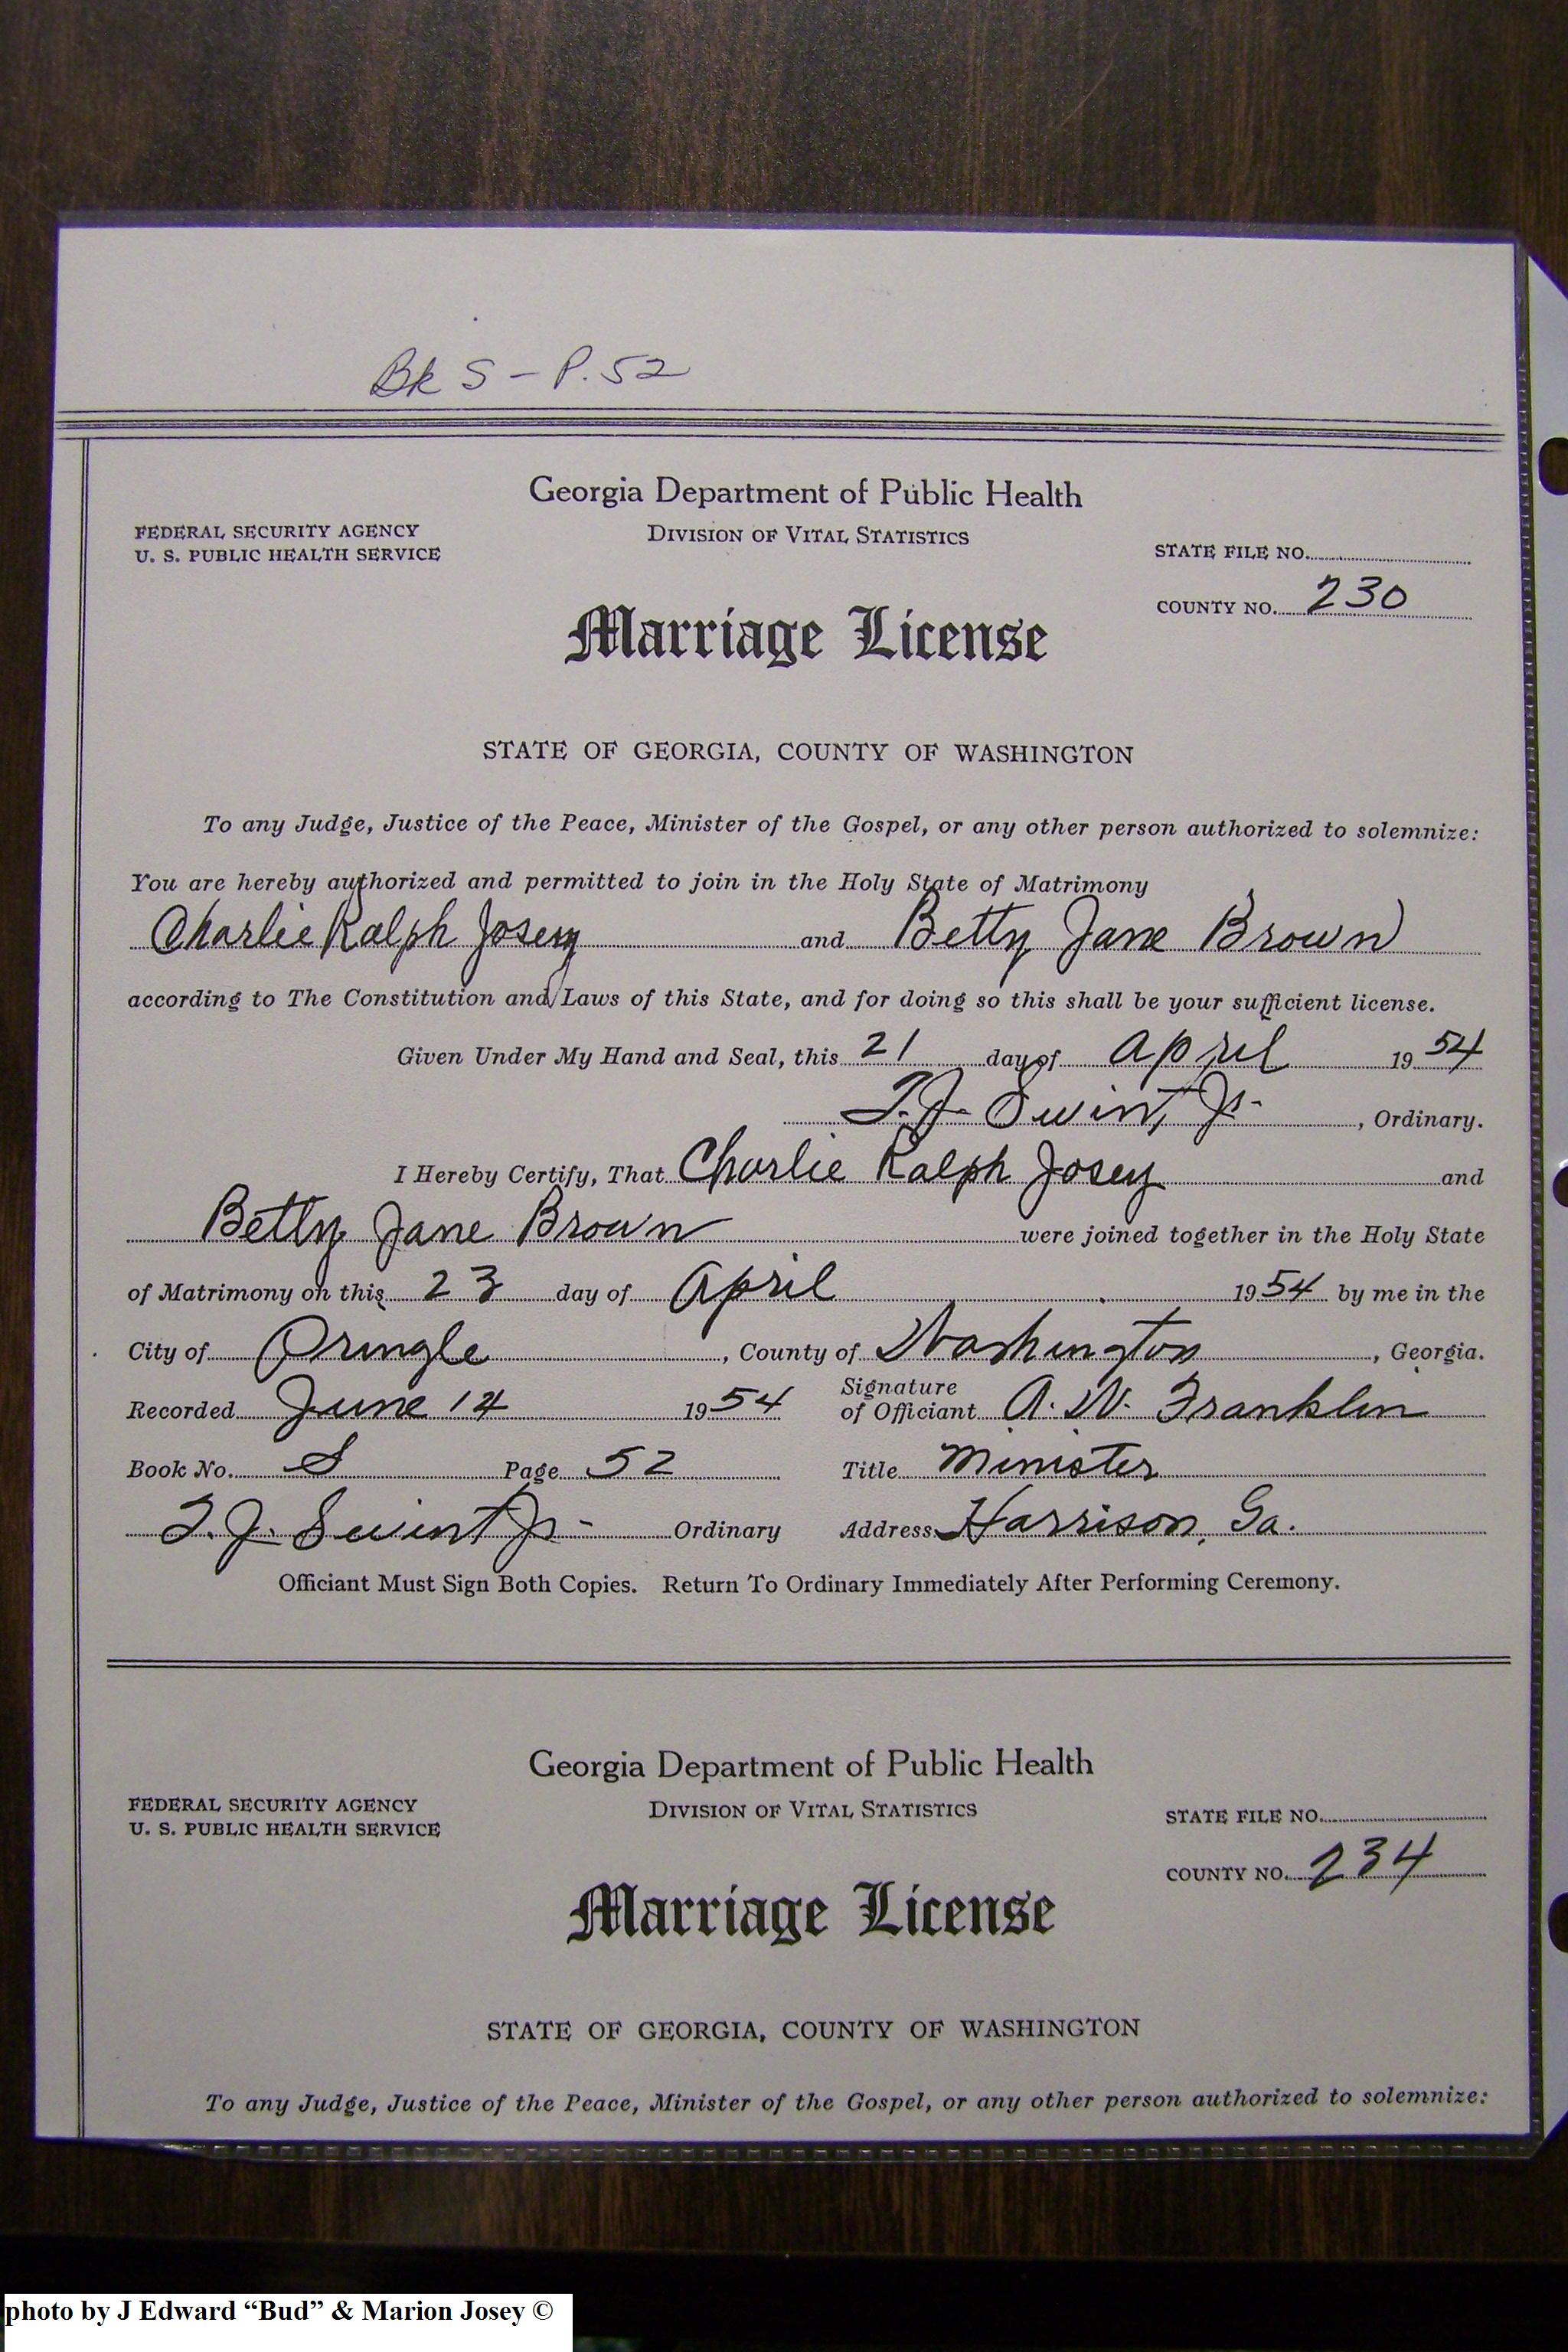 Bk S - P. 52
Georgia Department of Public Health
FEDERAL SECURITY AGENCY
U. S. PUBLIC HEALTH SERVICE
DIVISION OF VITAL STATISTICS
STATE FILE NO.
COUNTY NO. 230
Marriage License
STATE OF GEORGIA, COUNTY OF WASHINGTON
To any Judge, Justice of the Peace, Minister of the Gospel, or any other person authorized to solemnize:
You are hereby authorized and permitted to join in the Holy State of Matrimony
Charlie Ralph Josey and Betty Jane Brown
according to The Constitution and Laws of this State, and for doing so this shall be your sufficient license.
Given Under My Hand and Seal, this 21 day of April 1954
T. J. Swint, Jr. , Ordinary.
I Hereby Certify, That Charlie Ralph Josey and
Betty Jane Brown were joined together in the Holy State
of Matrimony on this 23 day of April 1954 by me in the
City of Pringle , County of Washington , Georgia.
Recorded June 14 1954 Signature of Officiant A. W. Franklin
Book No. S Page 52 Title Minister
T. J. Swint Jr. Ordinary Address Harrison, Ga.
Officiant Must Sign Both Copies. Return To Ordinary Immediately After Performing Ceremony.
Georgia Department of Public Health
FEDERAL SECURITY AGENCY
U. S. PUBLIC HEALTH SERVICE
DIVISION OF VITAL STATISTICS
STATE FILE NO.
COUNTY NO. 234
Marriage License
STATE OF GEORGIA, COUNTY OF WASHINGTON
To any Judge, Justice of the Peace, Minister of the Gospel, or any other person authorized to solemnize:
photo by J Edward “Bud” & Marion Josey ©